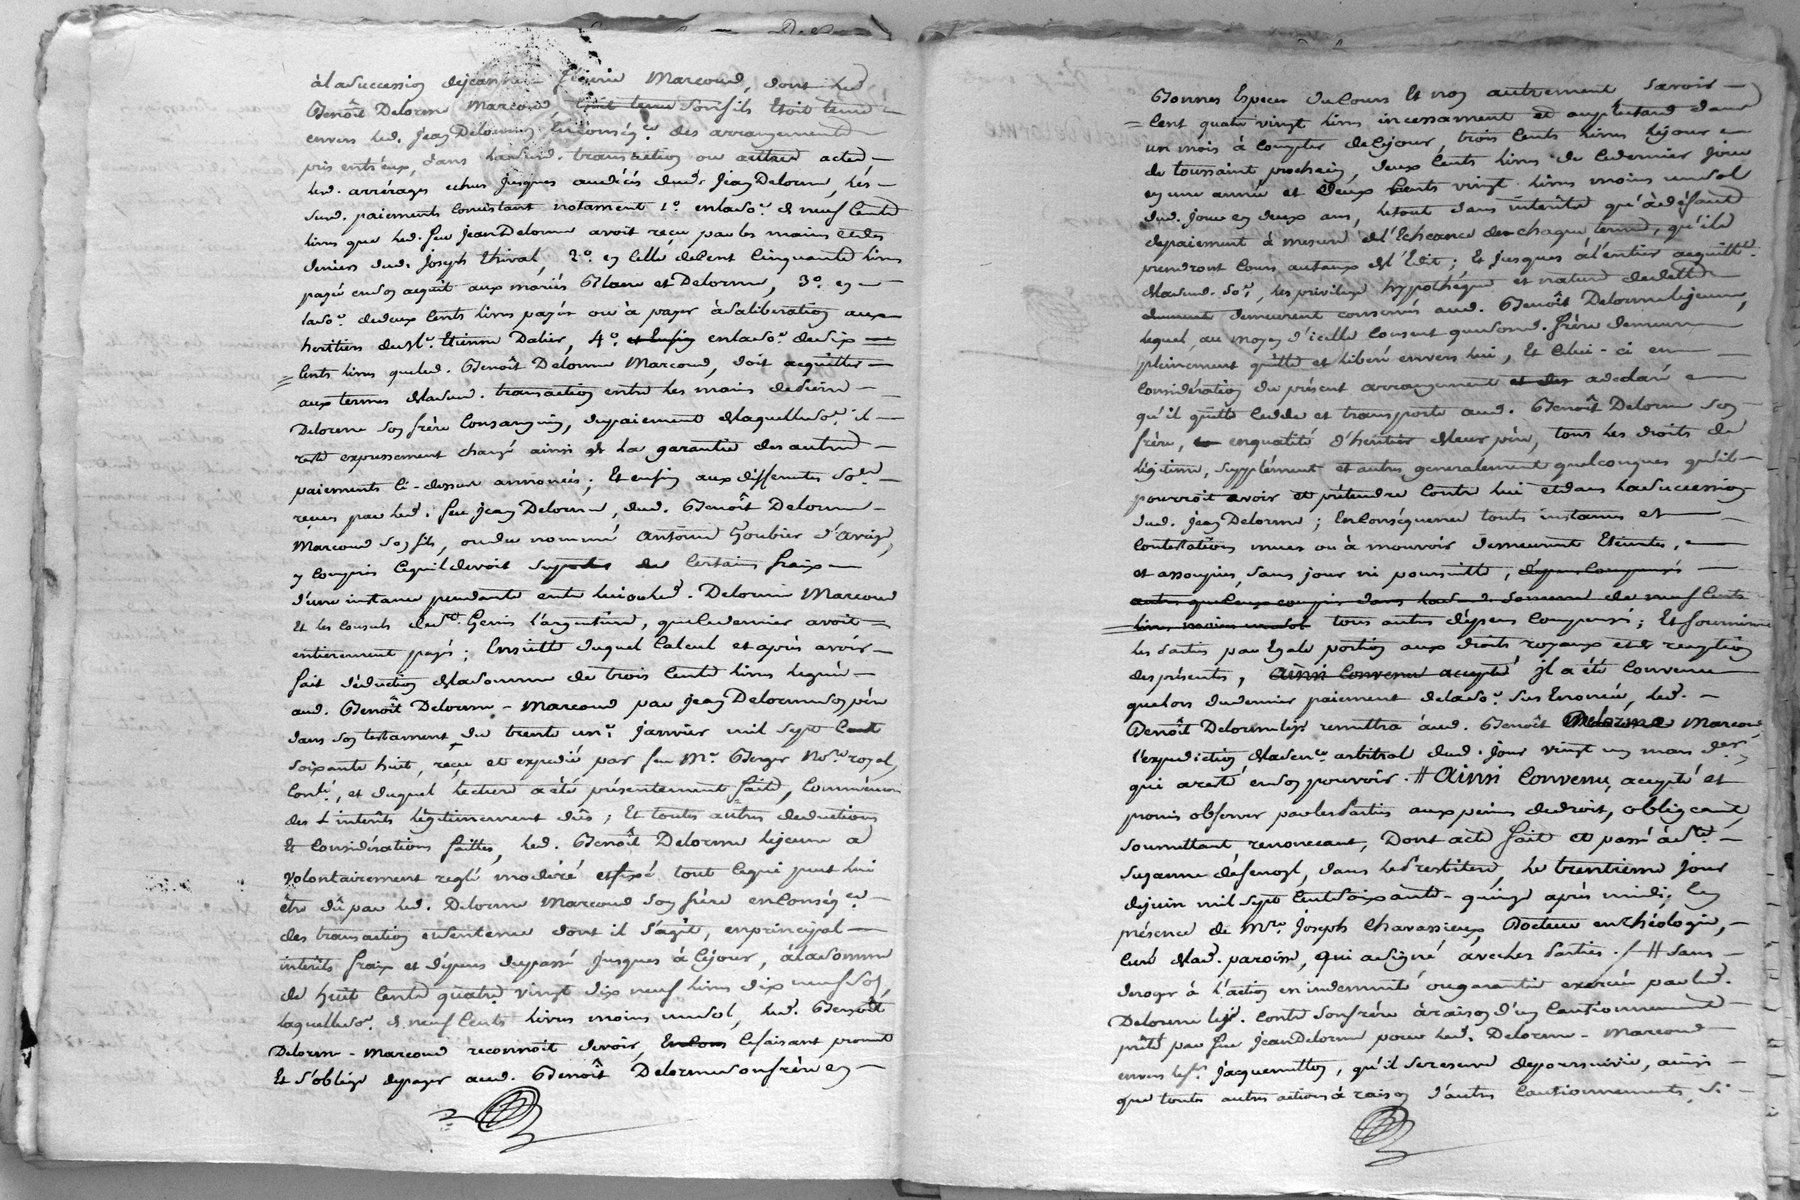 à la succession de jeanne Marcoud, dont led.
Benoît Delorme Marcoud son fils étoit tenu
envers led. Jean Delorme, en conséq.ce des arrangements
pris entr'eux, dans lad. transaction ou autres actes
led. arrérages echus jusques au décès dud. Jean Delorme, les
susd. paiements consistant notament 1.° en la so.e de neuf cents
livres que led. feu Jean Delorme avoit reçu par les mains et des
deniers dud. Joseph thival, 2.° en celle de cent cinquante livres
payée en son acquit aux mariés Blanc et Delorme, 3.° en
la so.e de deux cents livres payée ou à payer à sa libération aux
heritiers de M.e Etienne Dalier, 4.° et enfin en la so.e de six
cents livres que led. Benoît Delorme Marcoud, doit acquitter
aux termes de lad. transaction entre les mains de
Delorme son frère consanguin, du paiement de laquelle so.e il
reste expressement chargé ainsi de la garantie des autres
paiements ci-dessus annoncés; Et enfin aux differentes so.es
reçues par led. feu Jean Delorme, dud. Benoît Delorme
Marcoud son fils, ou du nommé Antoine Goubier d'Aveize,
y compris ce qu'il devoit supporter de certains fraix
d'une instance pendante entre lui ou led. Delorme Marcoud
et les consuls de S.t Genis l'argentière, que ce dernier avoit
entierement payés; Ensuitte duquel calcul et après avoir
fait déduction de la somme de trois cents livres leguée
aud. Benoît Delorme-Marcoud par Jean Delorme son père
dans son testament du trente un.e janvier mil sept cent
soixante huit, reçu et expedié par feu M.e Berger No.re royal,
Contr.é, et duquel lecture a été présentement faite, Comm'encore
des interêts légitimement dûs; Et toutes autres déductions
et considérations faittes, led. Benoît Delorme lejeune a
volontairement reglé modéré et fixé tout ce qui peut lui
être dû par led. Delorme Marcoud son frère en conséq.ce
des transaction et sentence dont il s'agit, en principal
interêts fraix et dépens du passé jusques à ce jour, à la somme
de huit cents quatre vingt dix neuf livres dix neuf sols,
laquelle so.e de neuf cents livres moins un sol, led. Benoît
Delorme-Marcoud reconnoit devoir, ce faisant promet
Et s'oblige de payer aud. Benoît Delorme son frère en
Bonnes Especes du cours Et non autrement savoir
Cent quatre vingt livres incessament et au plustard dans
un mois à compter de ce jour, trois cents livres le jour
de toussaint prochain, deux cents livres de ce dernier jour
en une année et deux cents vingt livres moins un sol
dud. jour en deux ans, le tout sans intérêts qu'à défaut
de paiement à mesure de l'Echeance de chaque terme, qu'ils
prendront cours au taux de l'Edit; Et jusques à l'entier acquitt.t
de lad. so.e, les privileges hypothéque et nature de dette
demeurent conservés aud. Benoît Delorme lejeune,
lequel au moyen d'icelle consent que son d. frère demeure
pleinement quitte et libéré envers lui, Et celui-ci en
considération du présent arrangement a déclaré
qu'il quitte cedde et transporte aud. Benoît Delorme son
frère, en qualité d'heritier de leur père, tous les droits de
légitime, supplément et autres generalement quelconques qu'il
pourroit avoir et prétendre contre lui et dans la succession
dud. Jean Delorme; En conséquence touts instances et
contestations mues ou à mouvoir demeurent Eteintes,
et assoupies, sans jour ni poursuitte, dépens compensés
autres que ceux compris dans lad. somme de neuf cents
livres moins un sol tous autres dépens compensés; Et fourniront
les Parties par Egale portion aux droits royaux et de reception
des présentes, Ainsi convenu accepté il a été convenu
que lors du dernier paiement de la so.e sus Enoncée, led.
Benoît Delorme lej.e remettra aud. Benoît Delorme Marcoud
l'expedition de la sen.ce arbitral dud. jour vingt un mars der.r
qui a resté en son pouvoir. # Ainsi Convenu, accepté et
promis observer par les Parties aux peines de droit, obligeant
soumettant renonceant, Dont acte fait et passé à S.te
Suzanne
dejuin mil sept Cents soixante-quinze après midi, En
présence de M.re Joseph Chavassieux Docteur en théologie,
Curé de lad. paroisse, qui a signé avec les Parties. /# Sans
deroger à l'action en indemnité ou garantie exercée par led.
Delorme lej.e contre son frère à raison d'un Cautionnement
prêté par feu Jean Delorme pour led. Delorme-Marcoud
envers le S.r Jaquemetton, qu'il se reserve de poursuivre, ainsi
que toutes autres actions à raison d'autres Cautionnements, Si